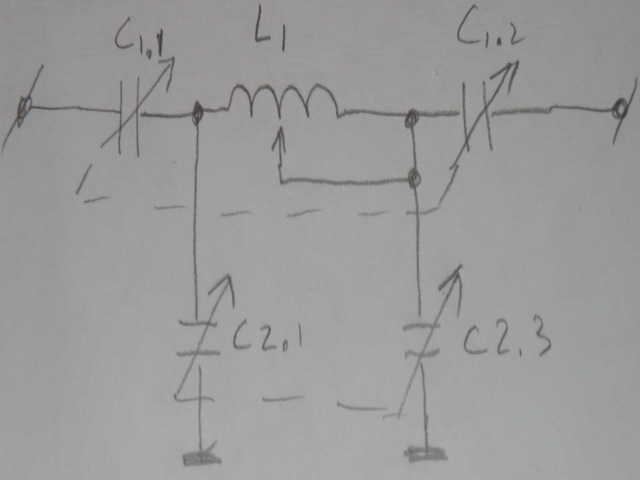 C1.1
L1
C1.2
C2.1
C2.3